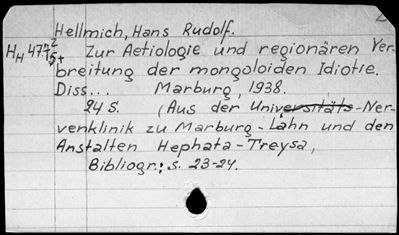 Hellmich, Hans Rudolf.
HH 477 2/15+ Zur Aetiologie und regionären Ver-
breitung der mongoloiden Idiotie.
Diss... Marburg, 1938.
24 S. (Aus der Universitäts-Ner-
venklinik zu Marburg-Lahn und den
Anstalten Hephata-Treysa,
Bibliogr.: S. 23-24.